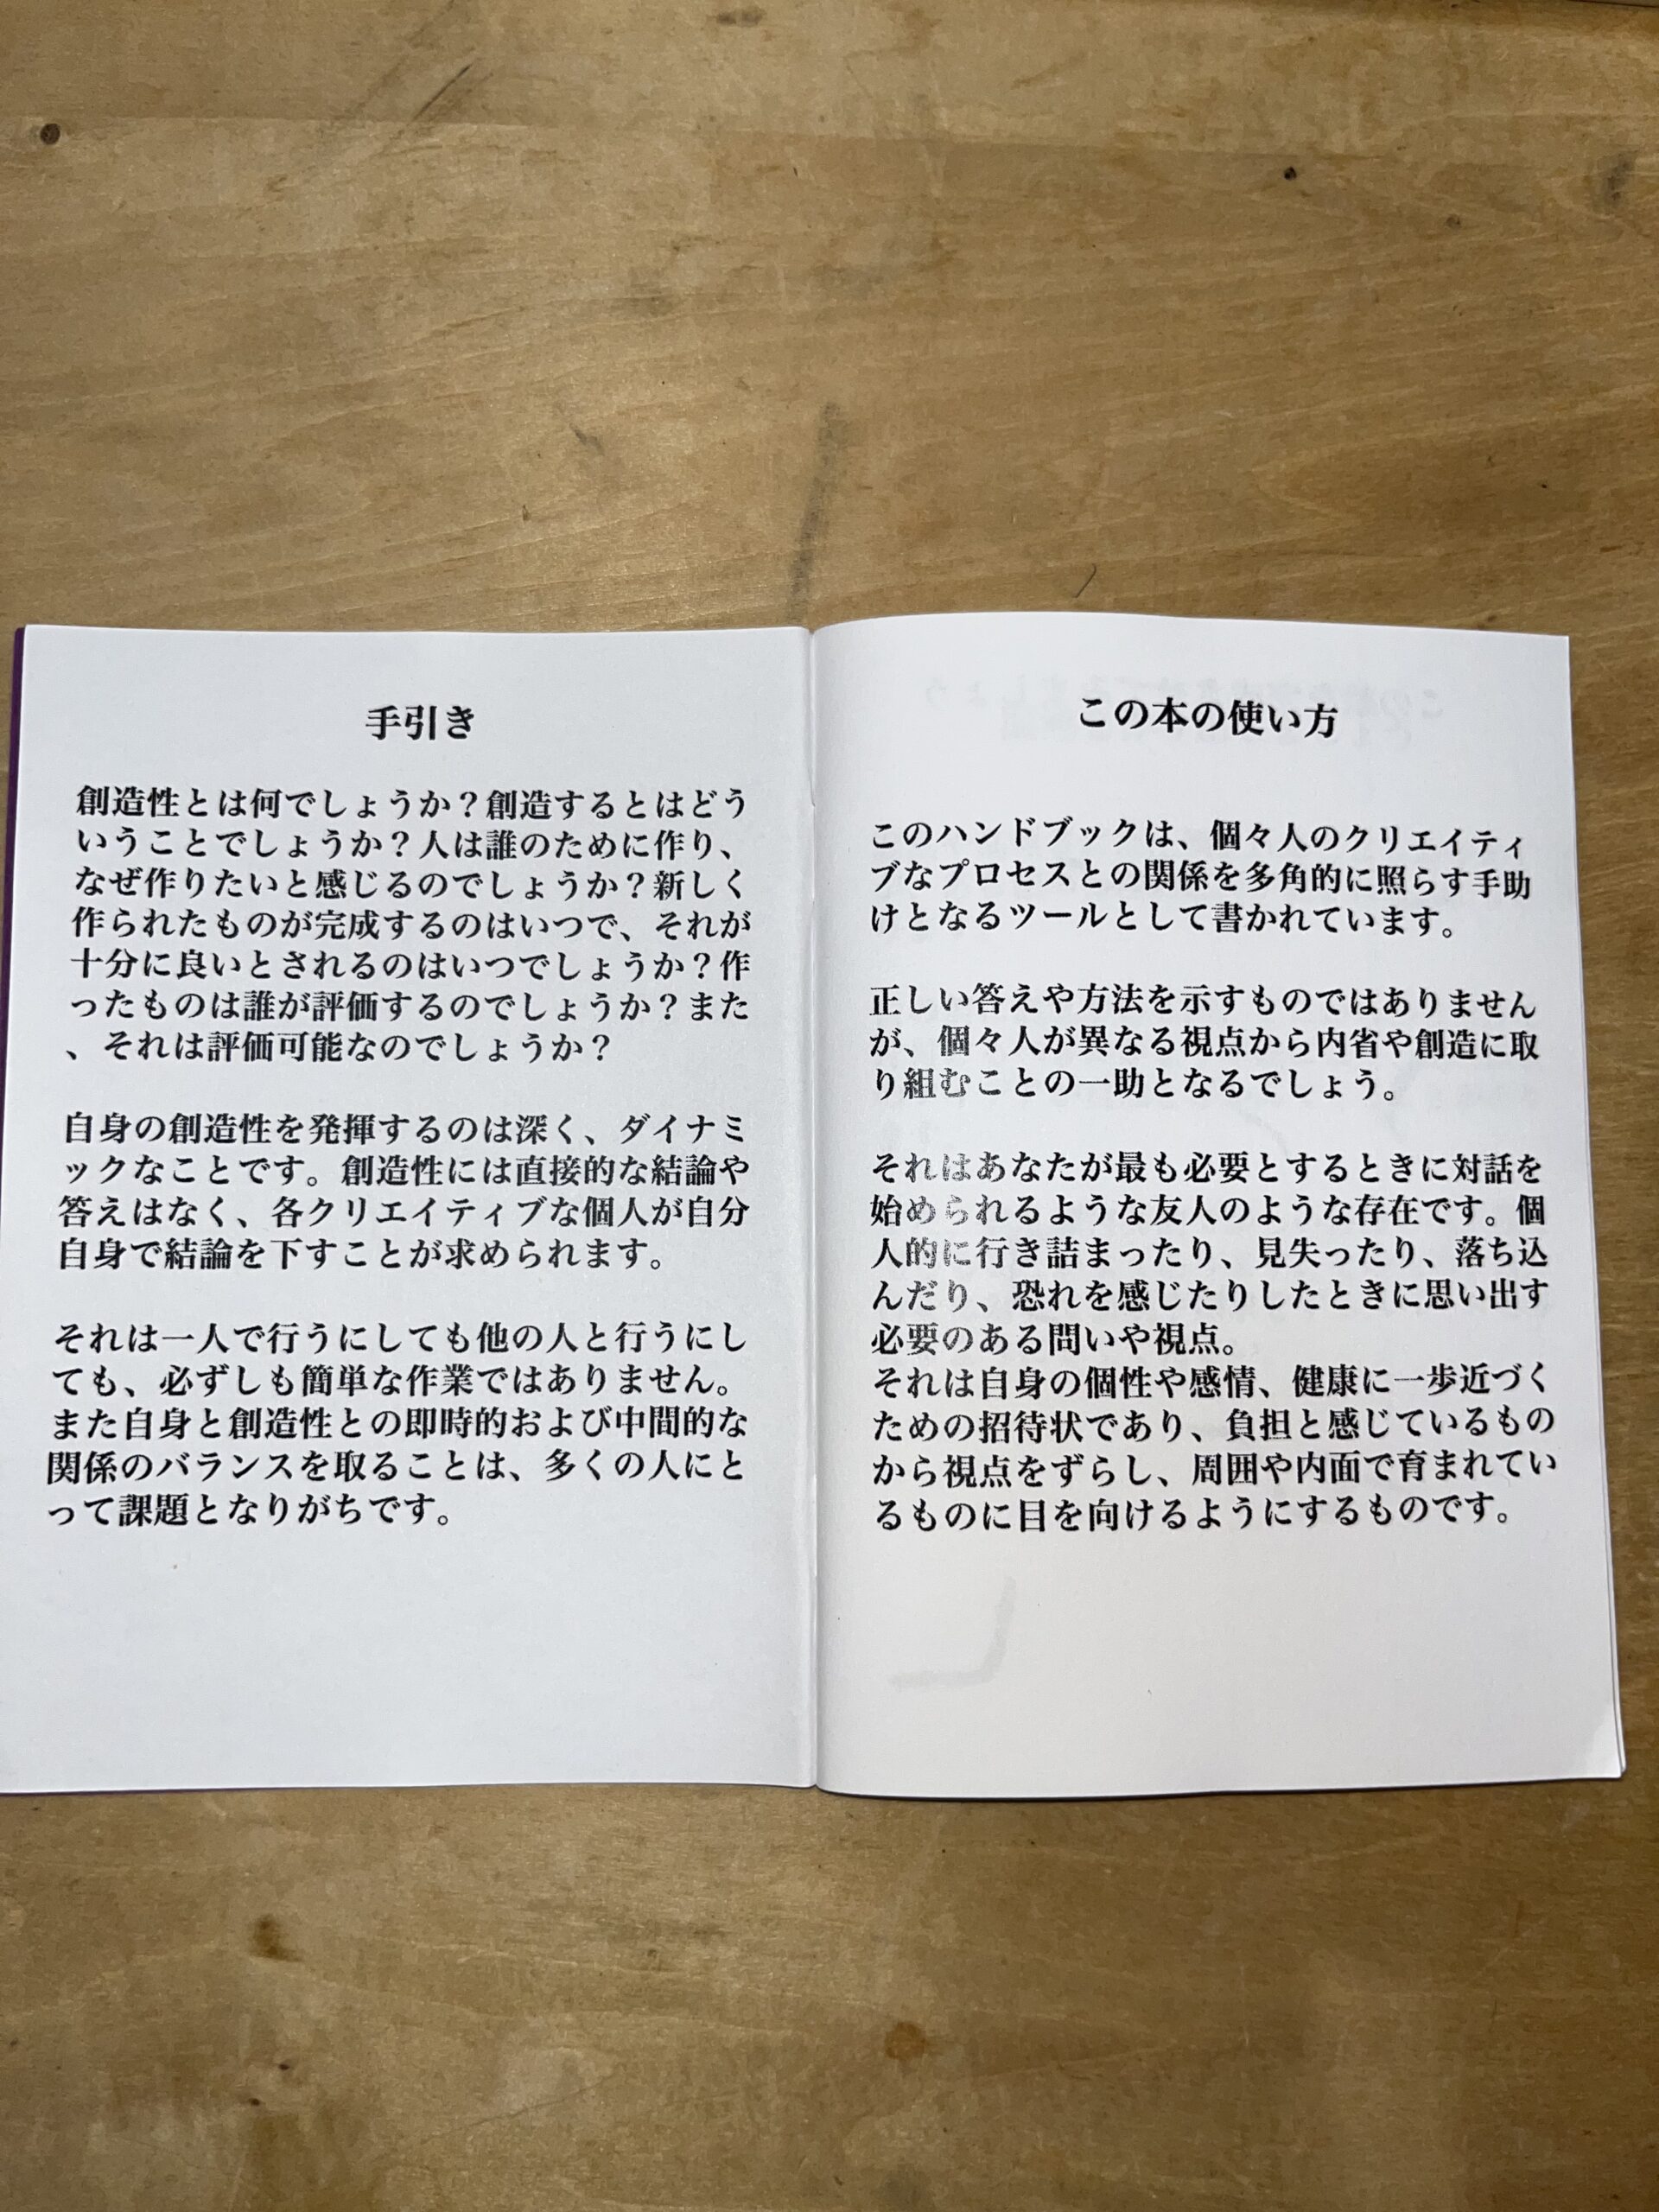 手引き
創造性とは何でしょうか？創造するとはどう
いうことでしょうか？人は誰のために作り、
なぜ作りたいと感じるのでしょうか？新しく
作られたものが完成するのはいつで、それが
十分に良いとされるのはいつでしょうか？作
ったものは誰が評価するのでしょうか？また
、それは評価可能なのでしょうか？
自身の創造性を発揮するのは深く、ダイナミ
ックなことです。創造性には直接的な結論や
答えはなく、各クリエイティブな個人が自分
自身で結論を下すことが求められます。
それは一人で行うにしても他の人と行うにし
ても、必ずしも簡単な作業ではありません。
また自身と創造性との即時的および中間的な
関係のバランスを取ることは、多くの人にと
って課題となりがちです。
この本の使い方
このハンドブックは、個々人のクリエイティ
ブなプロセスとの関係を多角的に照らす手助
けとなるツールとして書かれています。
正しい答えや方法を示すものではありません
が、個々人が異なる視点から内省や創造に取
り組むことの一助となるでしょう。
それはあなたが最も必要とするときに対話を
始められるような友人のような存在です。個
人的に行き詰まったり、見失ったり、落ち込
んだり、恐れを感じたりしたときに思い出す
必要のある問いや視点。
それは自身の個性や感情、健康に一歩近づく
ための招待状であり、負担と感じているもの
から視点をずらし、周囲や内面で育まれてい
るものに目を向けるようにするものです。